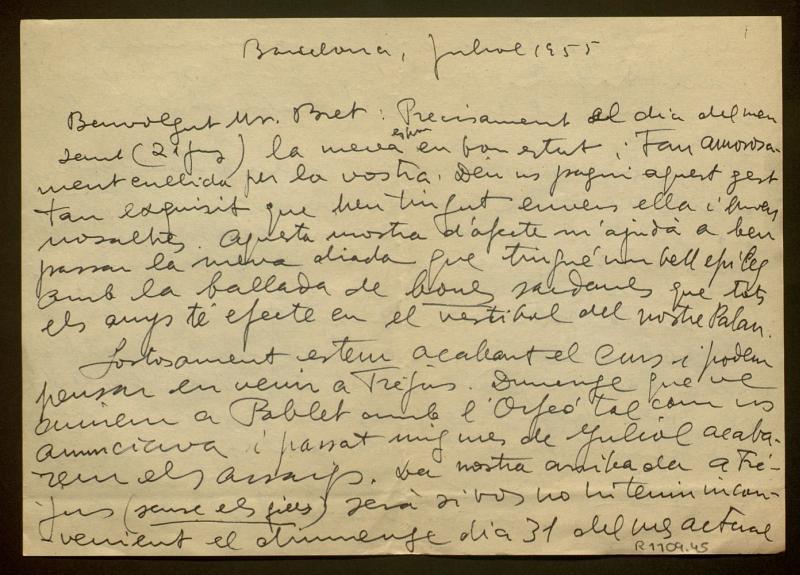 Barcelona, Juliol 1955
Benvolgut Mr. Bret: Precisament el dia del meu
sant (21 juny) la meva en bon estat i Tan amorosa-
ment cullida per la vostra. Déu us pagui aquest gest
tan exquisit que heu tingut envers ella i envers
nosaltres. Aquesta mostra d'afecte m'ajudà a ben
passar la meva diada que tingué un bell epíleg
amb la ballada de bones sardanes que tots
els anys té efecte en el vestíbul del nostre Palau.
Sortosament estem acabant el Curs i podem
pensar en venir a Fréjus. Diumenge que ve
anirem a Poblet amb l'Orfeó tal com us
anunciava i passat mig mes de Juliol acaba-
rem els assaigs. La nostra arribada a Fré-
jus (sense els) serà si vos no hi teniu incon-
-venient el diumenge dia 31 del mes actual
R.1109.45